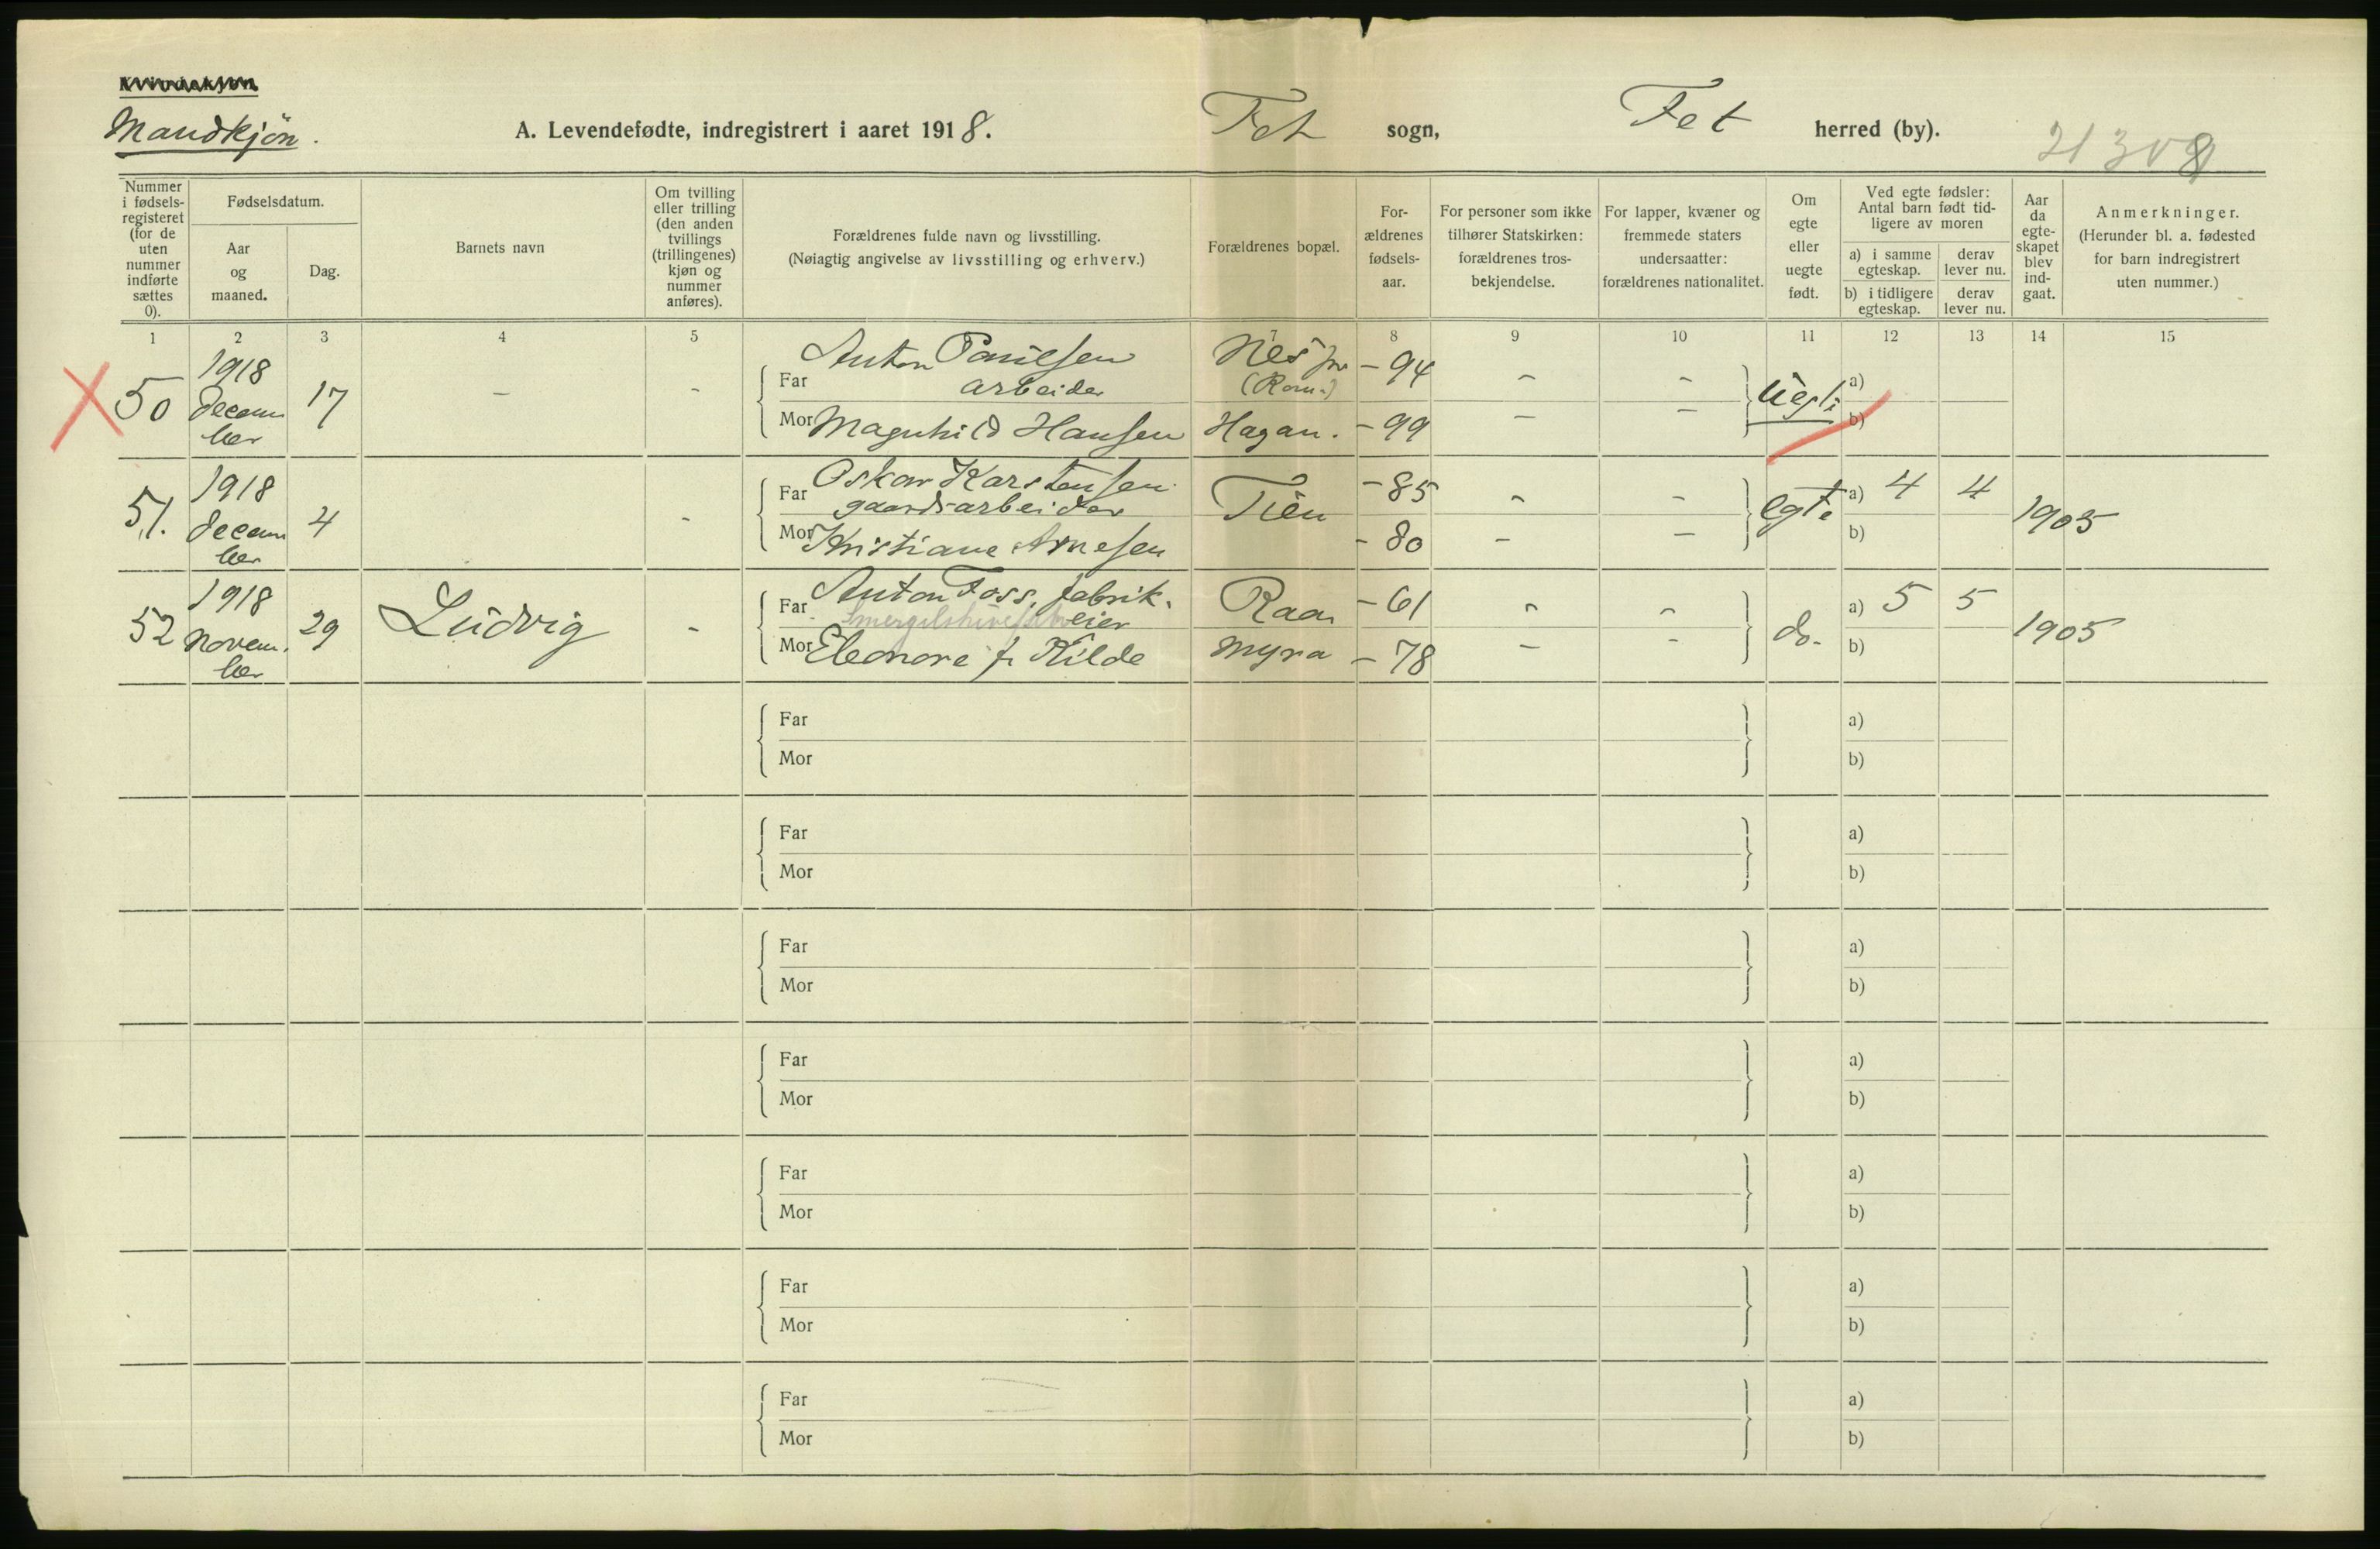 Mandkjøn.
A. Levendefødte, indregistrert i aaret 1918.
Fet sogn,
Fet herred (by).
Nummer i fødselsregisteret (for de uten nummer indførte sættes 0).
Fødselsdatum.
Aar og maaned.
Dag.
Barnets navn
Om tvilling eller trilling (den anden tvillings (trillingenes) kjøn og nummer anføres).
Forældrenes fulde navn og livsstilling.
(Nøiagtig angivelse av livsstilling og erhverv.)
Forældrenes bopæl.
Forældrenes fødselsaar.
For personer som ikke tilhører Statskirken: forældrenes trosbekjendelse.
For lapper, kvæner og fremmede staters undersaatter: forældrenes nationalitet.
Om egte eller uegte født.
Ved egte fødsler: Antal barn født tidligere av moren
a) i samme egteskap.
derav lever nu.
b) i tidligere egteskap.
derav lever nu.
Aar da egteskapet blev indgaat.
Anmerkninger.
(Herunder bl. a. fødested for barn indregistrert uten nummer.)
1 2 3 4 5 7 8 9 10 11 12 13 14 15
50 1918 December 17 - -
Far Anton Paulsen arbeider Nes (Rom.) - 94 - -
Mor Magnhild Hansen Hagan. - 99 - -
Uegte a)
b)
51. 1918 December 4 -
Far Oskar Karstensen gaardsarbeider - 85 - -
Mor Kristiane Arnesen - 80 - -
egte a) 4 4 1905
b)
52 1918 November 29 Ludvig -
Far Anton Foss, fabrikeier Raa - 61 - -
Mor Eleonore f. Kilde myra - 78 - -
do. a) 5 5 1905
b)
Far a)
Mor b)
Far a)
Mor b)
Far a)
Mor b)
Far a)
Mor b)
Far a)
Mor b)
Far a)
Mor b)
Far a)
Mor b)